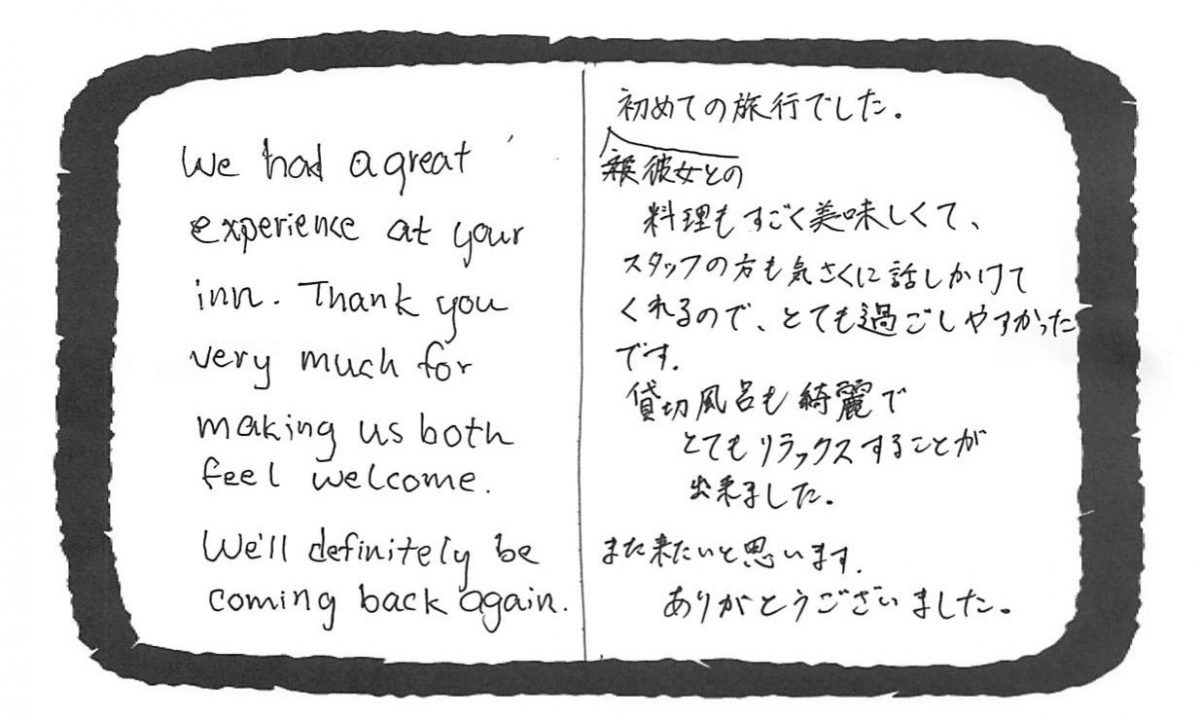 We had a great
experience at your
inn. Thank you
very much for
making us both
feel welcome.
We'll definitely be
coming back again.
初めての旅行でした。
彼女との
料理もすごく美味しくて、
スタッフの方も気さくに話しかけて
くれるので、とても過ごしやすかった
です.
貸切風呂も綺麗で
とてもリラックスすることが
出来ました.
また来たいと思います.
ありがとうございました。